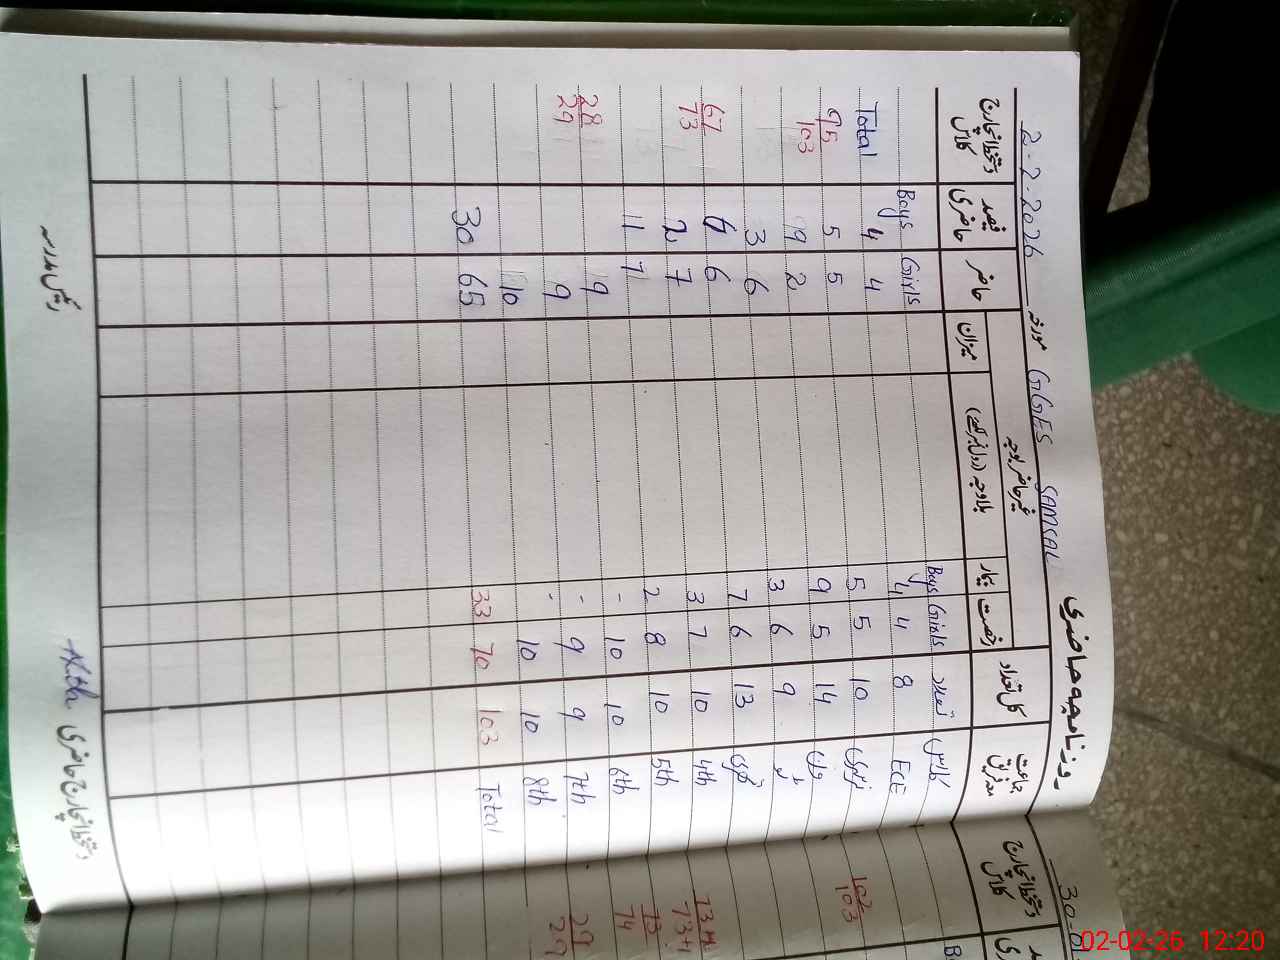 روزنامچہ حاضری
2-2-2026 مورخہ GGES SAMSAL
جماعت معہ فریق کل تعداد غیر حاضر باوجہ حاضر فیصد حاضری دستخط انچارج کلاس
رخصت بیمار بلاوجہ (رول نمبر لکھیے) میزان
Boys Girls Boys Girls تعداد کلاس
Total 4 4 4 4 8 ECE
95/103 5 5 5 5 10 نرسری
9 2 9 5 14 ون
3 6 3 6 9 ٹو
67/73 6 6 7 6 13 تھری
2 7 3 7 10 4th
1 7 2 8 10 5th
28/29 9 - 10 10 6th
9 - 9 9 7th
10 - 10 10 8th
30 65 33 70 103 Total
دستخط انچارج حاضری رئیس مدرسہ
30-01
دستخط انچارج کلاس
102/103
73/74
29/29
02-02-26 12:20